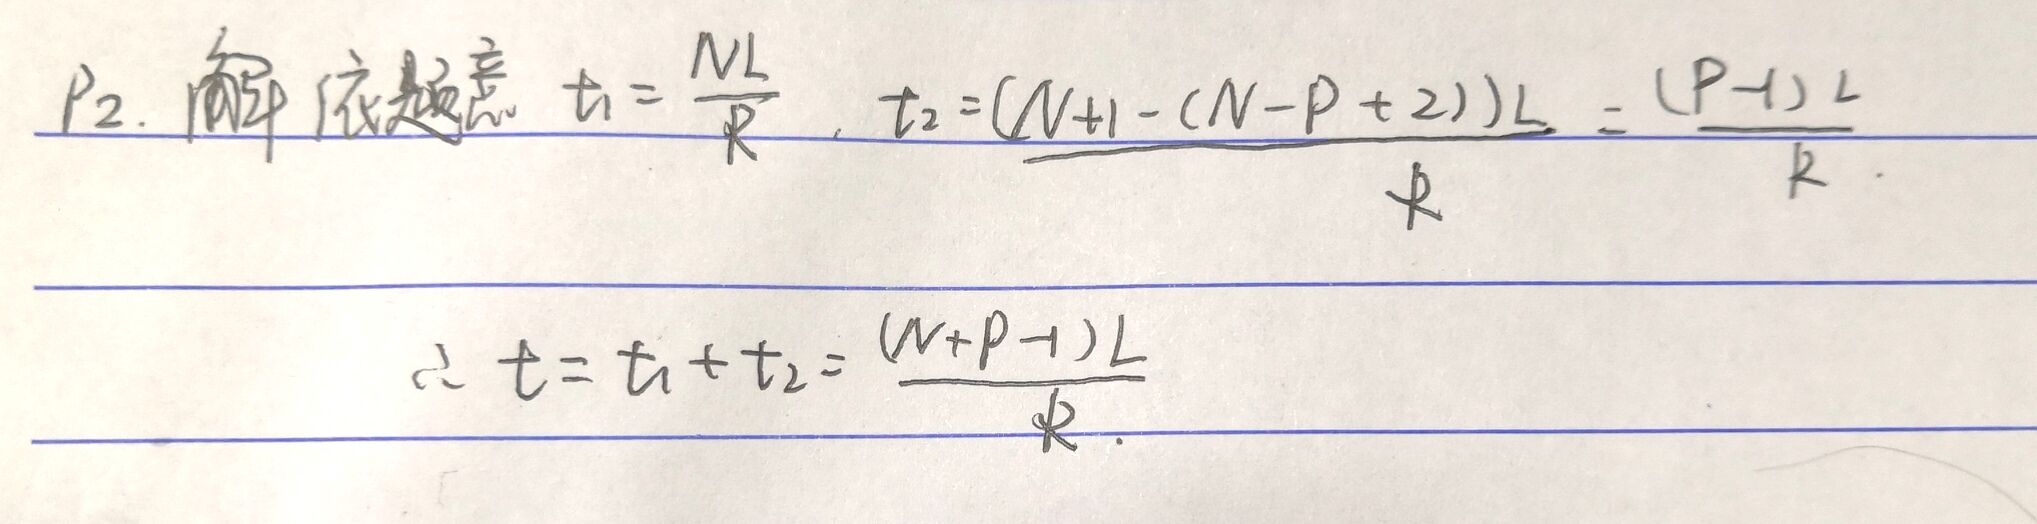 P2. 解 依题意 t₁ = NL/R , t₂ = (N+1-(N-P+2))L/R = (P-1)L/R .
∴ t = t₁ + t₂ = (N+P-1)L/R .